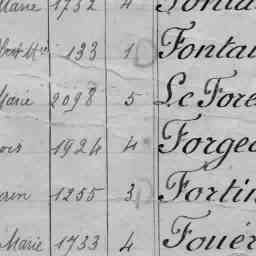 Marie 1732 4 Fonta
bert Mie 133 1 D Fontai
Marie 2098 5 Le Fore
ois 1924 4 Forgeo
rin 1255 3 D Fortin
Marie 1733 4 Fouér